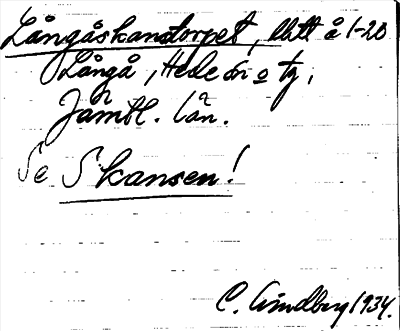 Långåskanstorpet, litt å 1-20
Långå, Hede sn o tg,
Jämtl. län.
Se Skansen!
C. Lindberg 1934.